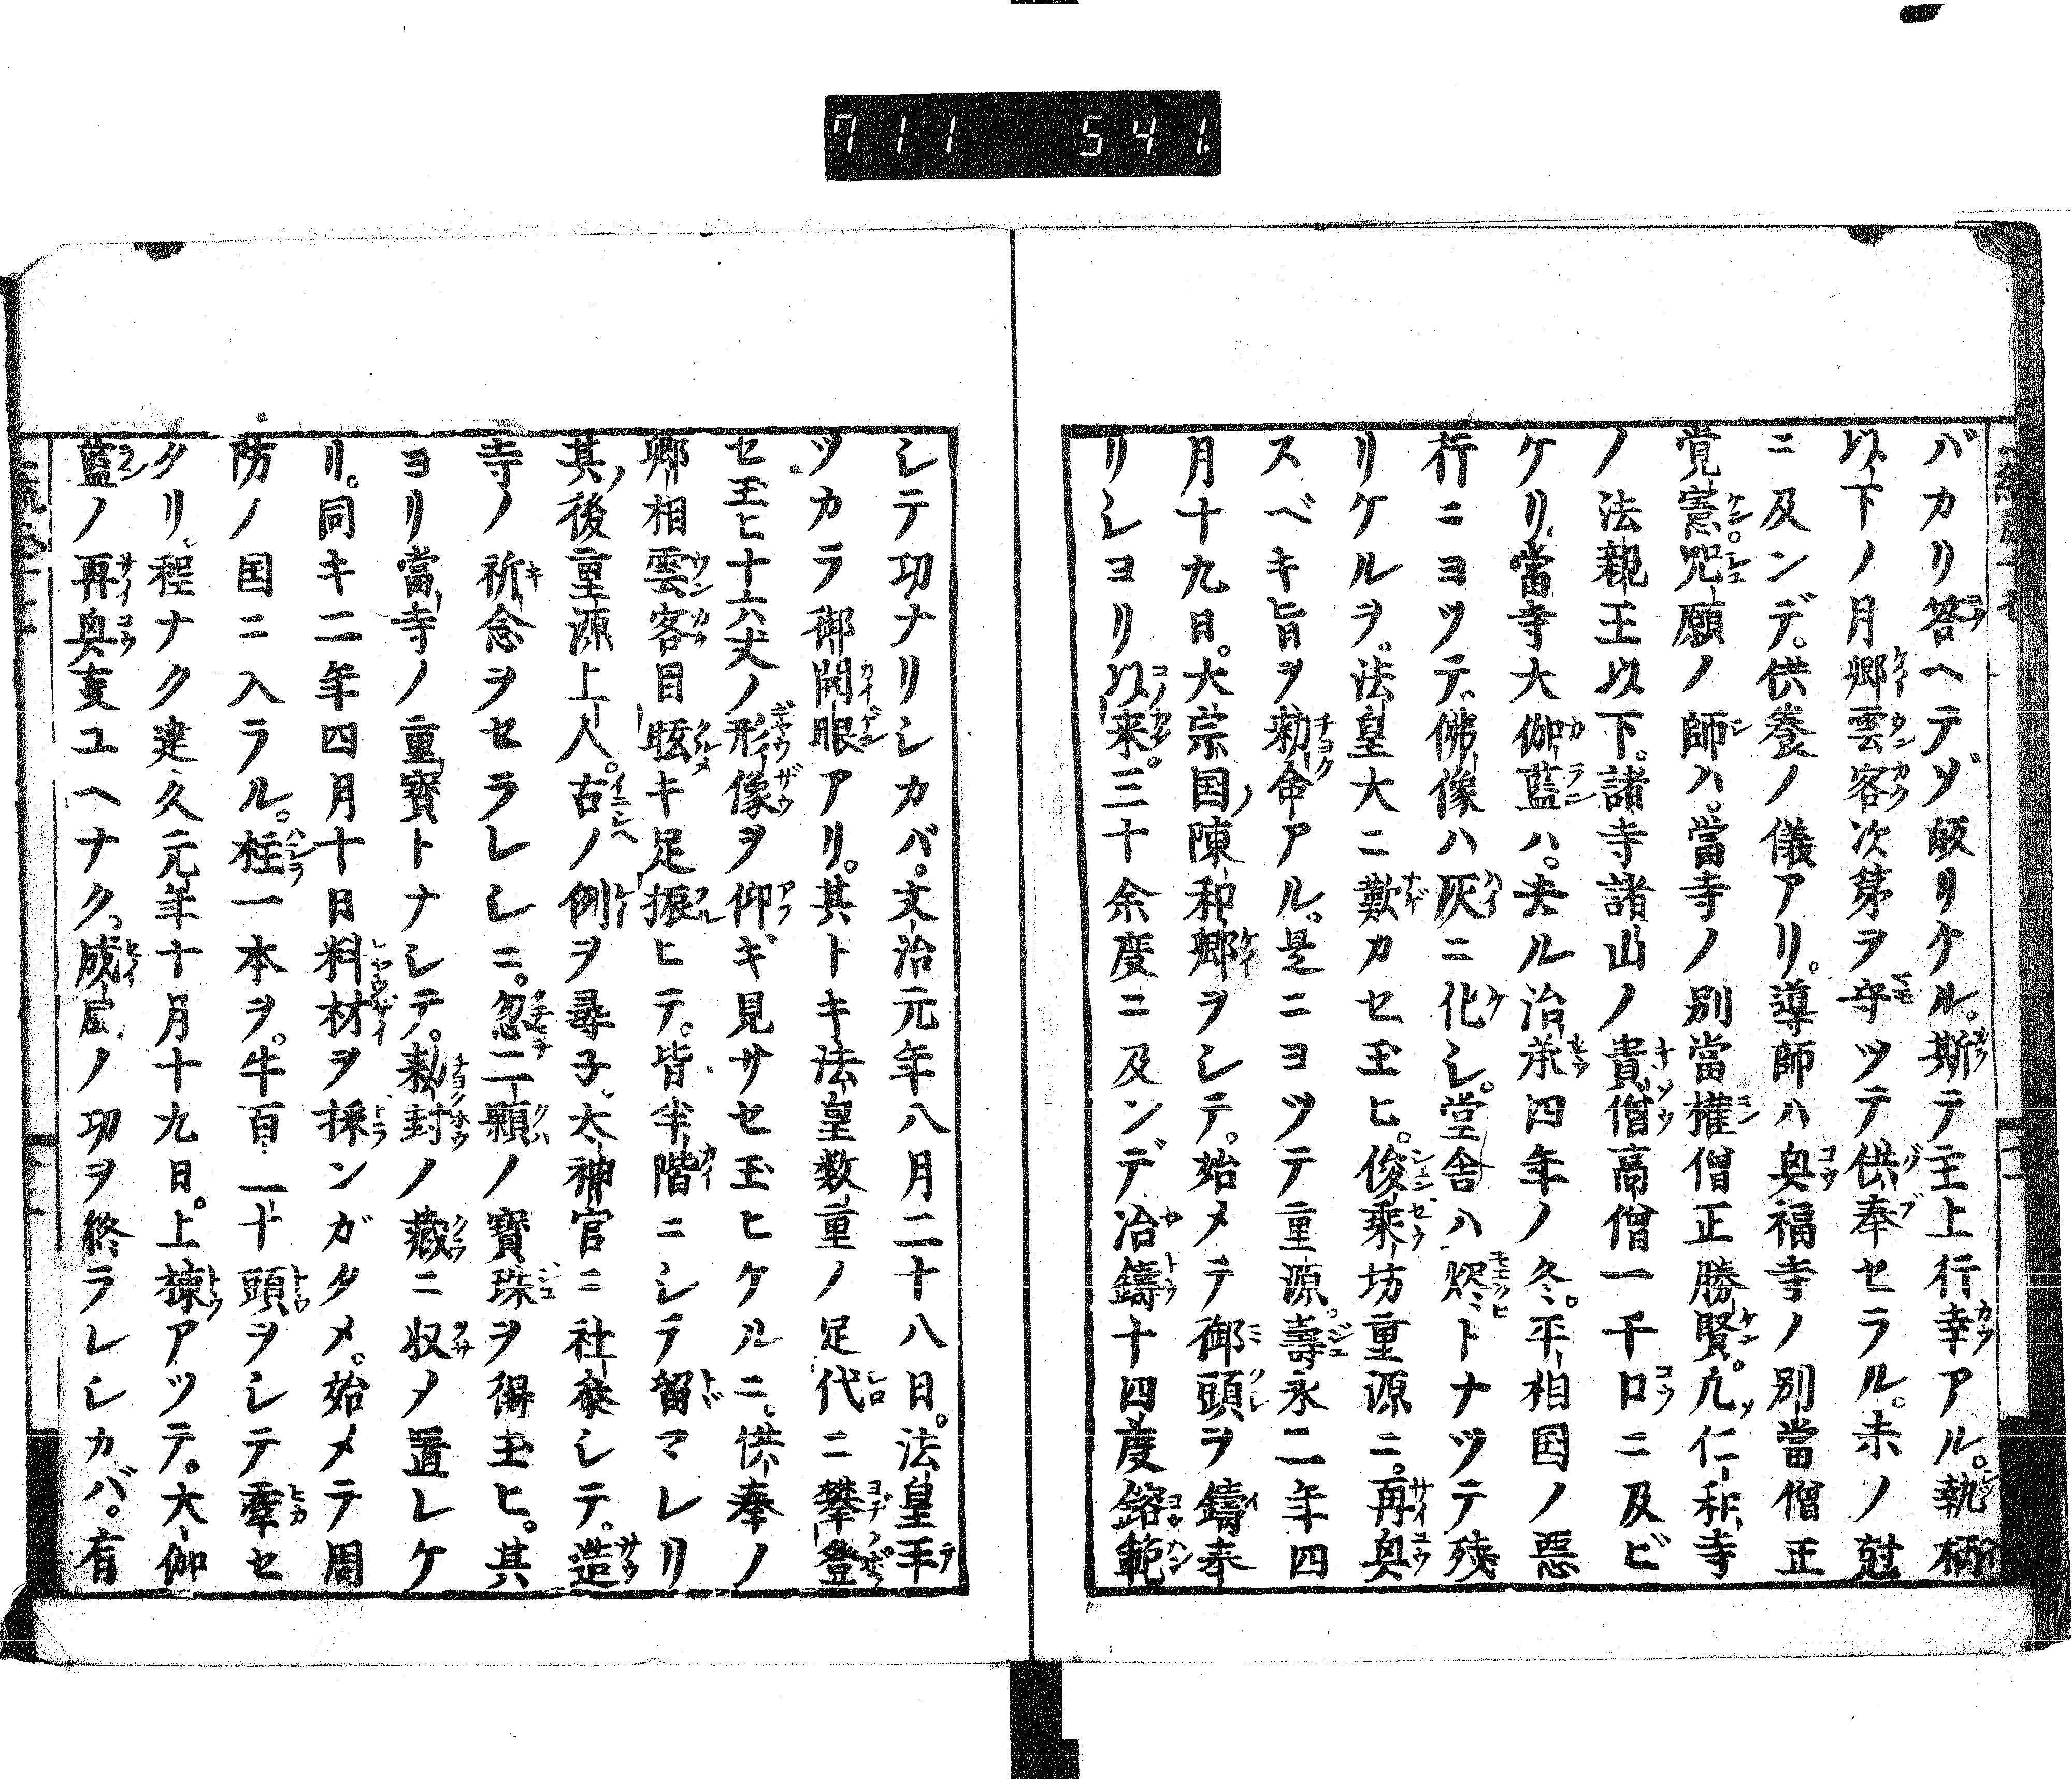 711 541.
バカリ答ヘテゾ皈リケル。斯テ主上行幸アル。執柄
以下ノ月卿雲客次第ヲ守ツテ供奉セラル。未ノ尅
ニ及ンデ。供養ノ儀アリ。導師ハ興福寺ノ別當僧正
覚憲呪願ノ師ハ。當寺ノ別當権僧正勝賢。凢仁和寺
ノ法親王以下。諸寺諸山ノ貴僧高僧一千口ニ及ビ
ケリ。當寺大伽藍ハ。去ル治承四年ノ冬。平相国ノ惡
行ニヨツテ。佛像ハ灰ニ化シ。堂舎ハ燼トナツテ残
リケルヲ。法皇大ニ歎カセ玉ヒ。俊乘坊重源ニ。再興
スベキ旨ヲ勅命アル。是ニヨツテ重源。壽永二年四
月十九日。大宗国ノ陳和卿ヲシテ。始メテ御頭ヲ鑄奉
リシヨリ以来。三十余度ニ及ンデ冶鑄十四度鎔範
シテ功ナリシカバ。文治元年八月二十八日。法皇手
ヅカラ御開眼アリ。其トキ法皇数重ノ足代ニ攀登
セ玉ヒ十六丈ノ形像ヲ仰ギ見サセ玉ヒケルニ。供奉ノ
卿相雲客目眩キ足振ヒテ。皆半階ニシテ留マレリ
其ノ後重源上人。古ノ例ヲ尋子。大神官ニ社参シテ。造
寺ノ祈念ヲセラレシニ。忽二顆ノ寳珠ヲ得玉ヒ。其
ヨリ當寺ノ重寳トナシテ。勅封ノ藏ニ収メ置レケ
リ。同キ二年四月十日料材ヲ採ンガタメ。始メテ周
防ノ国ニ入ラル。柱一本ヲ。牛百二十頭ヲシテ牽セ
タリ。程ナク建久元年十月十九日。上棟アツテ。大伽
藍ノ再興支ユヘナク。成屆ノ功ヲ終ラレシカバ。有